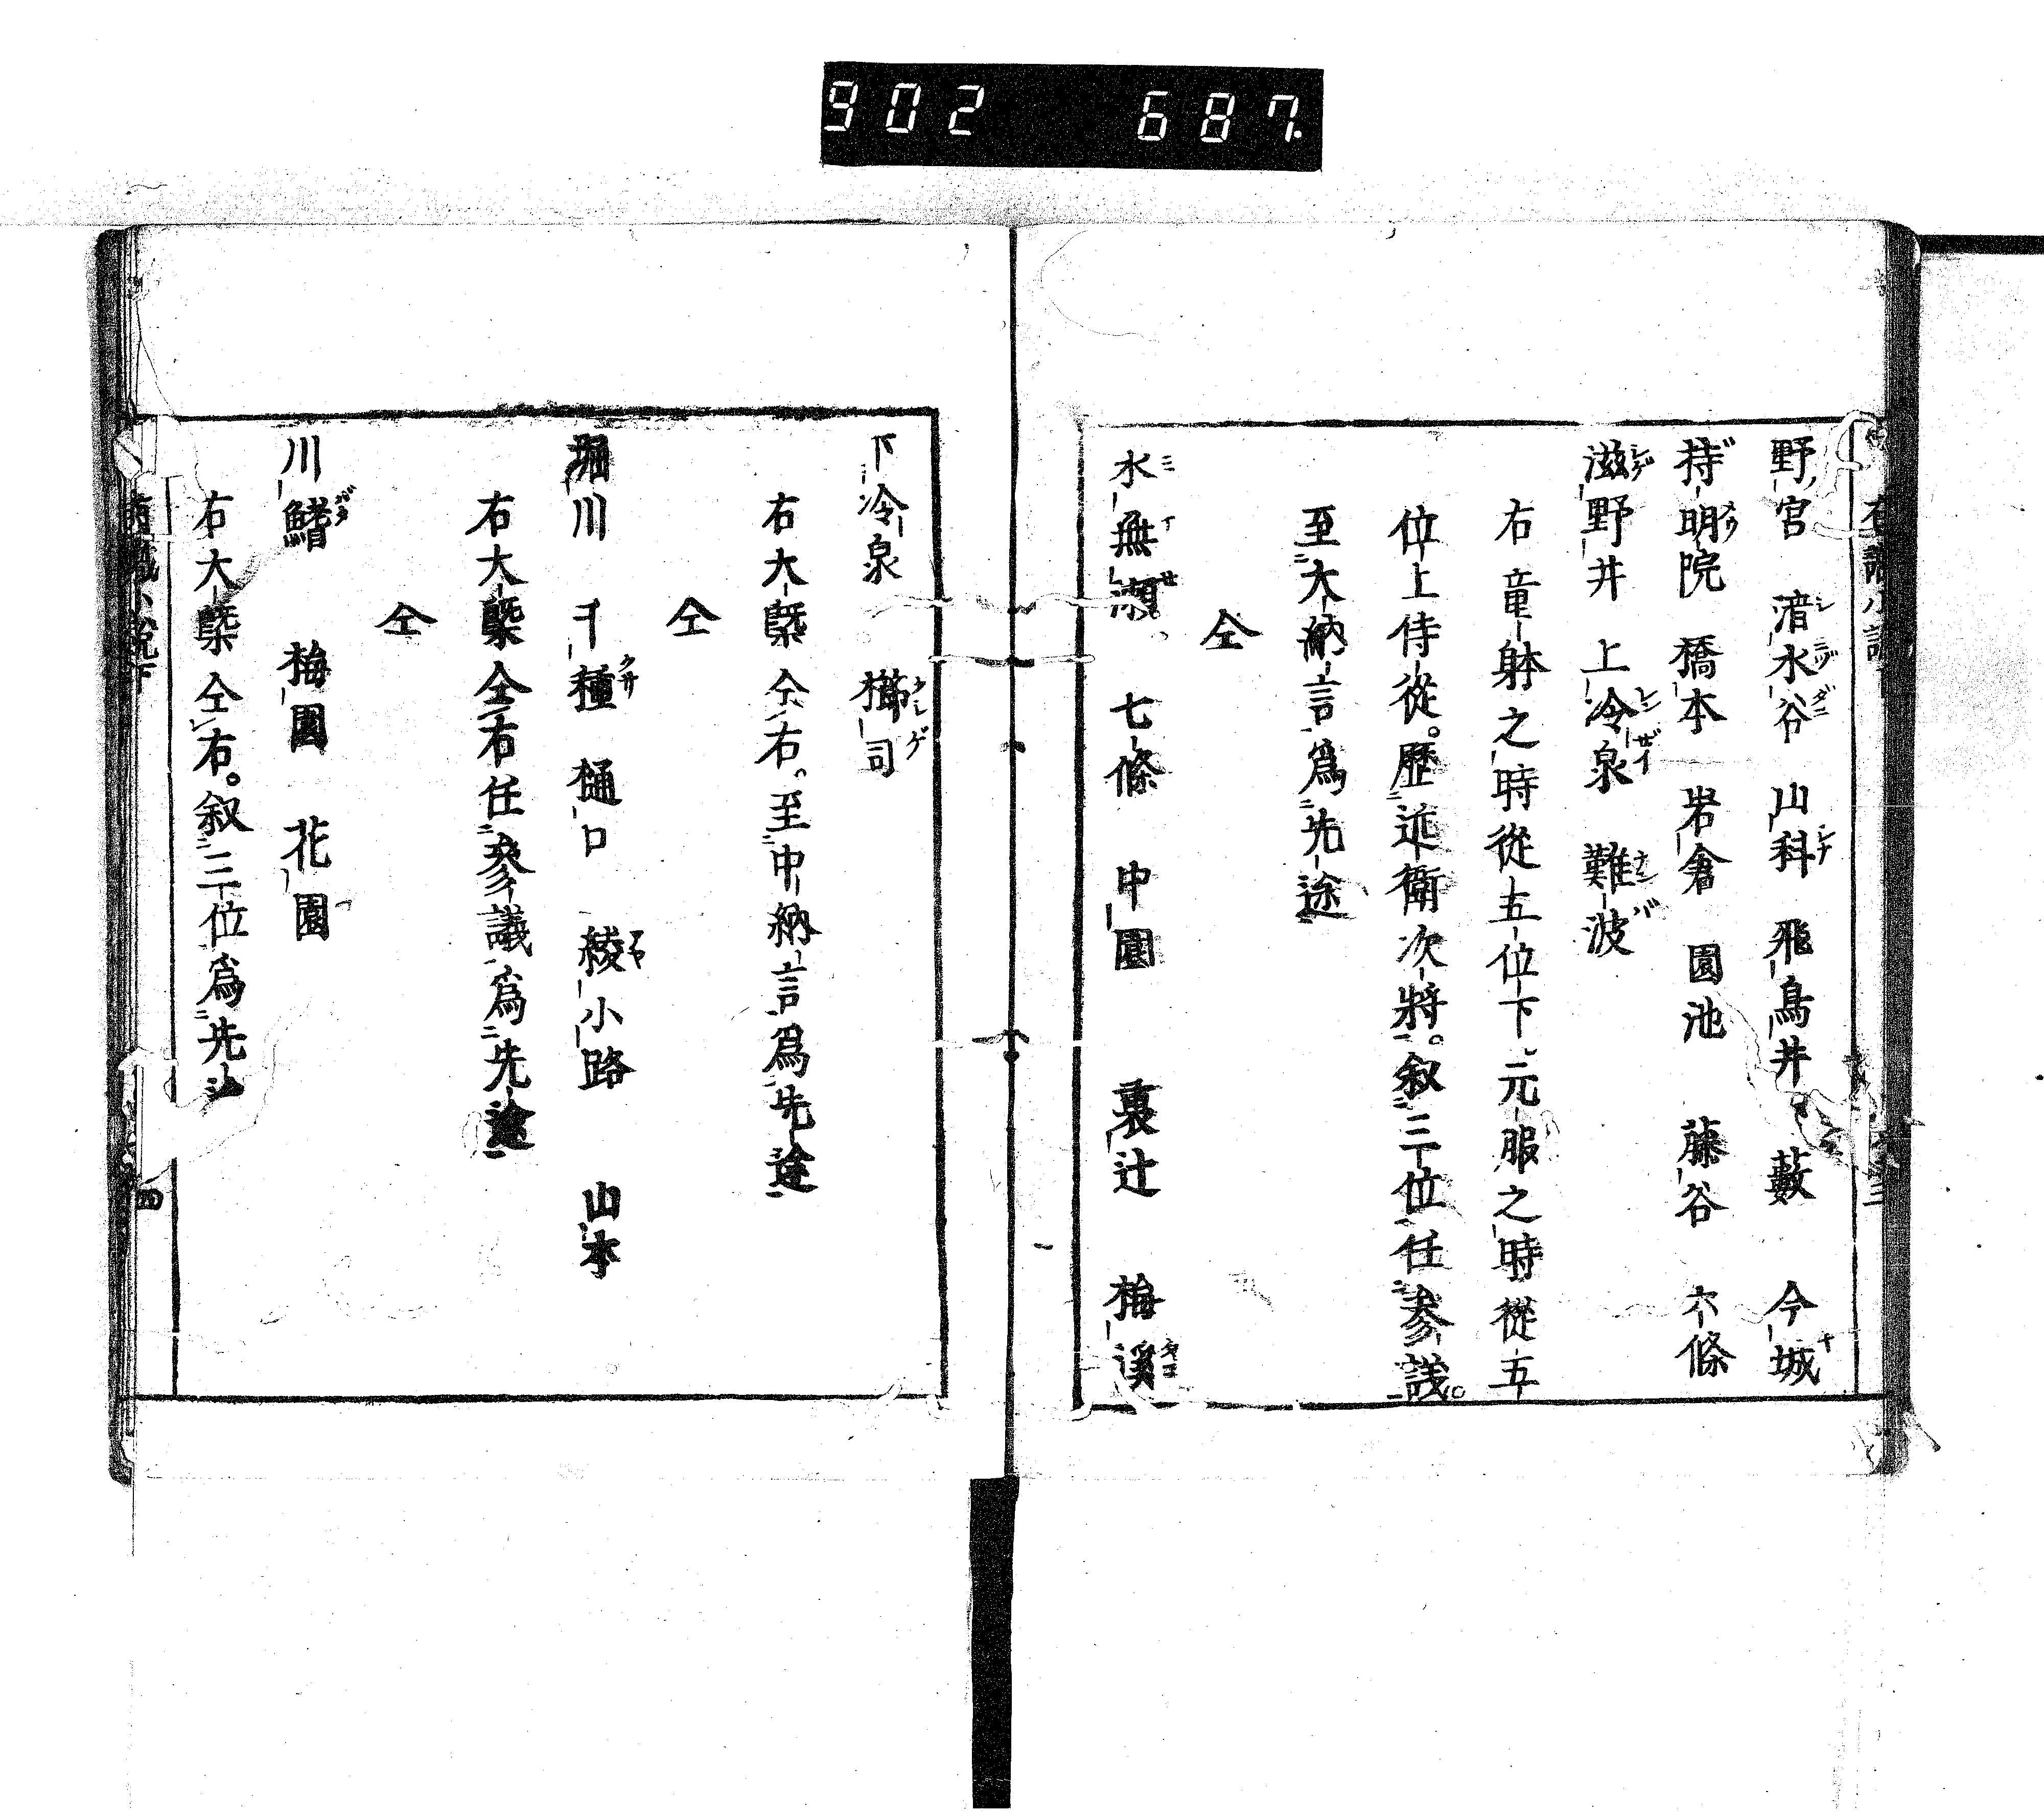 902 687.
野宮 清水谷 山科 飛鳥井 藪 今城
持明院 橋本 岩倉 園池 藤谷 六條
滋野井 上冷泉 難波
右童躰之時從五位下元服之時從五
位上侍從。歷近衛次將。叙三位任參議。
至大納言爲先途
仝
水無瀬 七條 中園 裏辻 梅溪
下冷泉 櫛司
右大槩仝右。至中納言爲先途
仝
堀川 千種 樋口 綾小路 山本
右大槩仝右任參議爲先途
仝
川鰭 梅園 花園
右大槩仝右。叙三位爲先
四